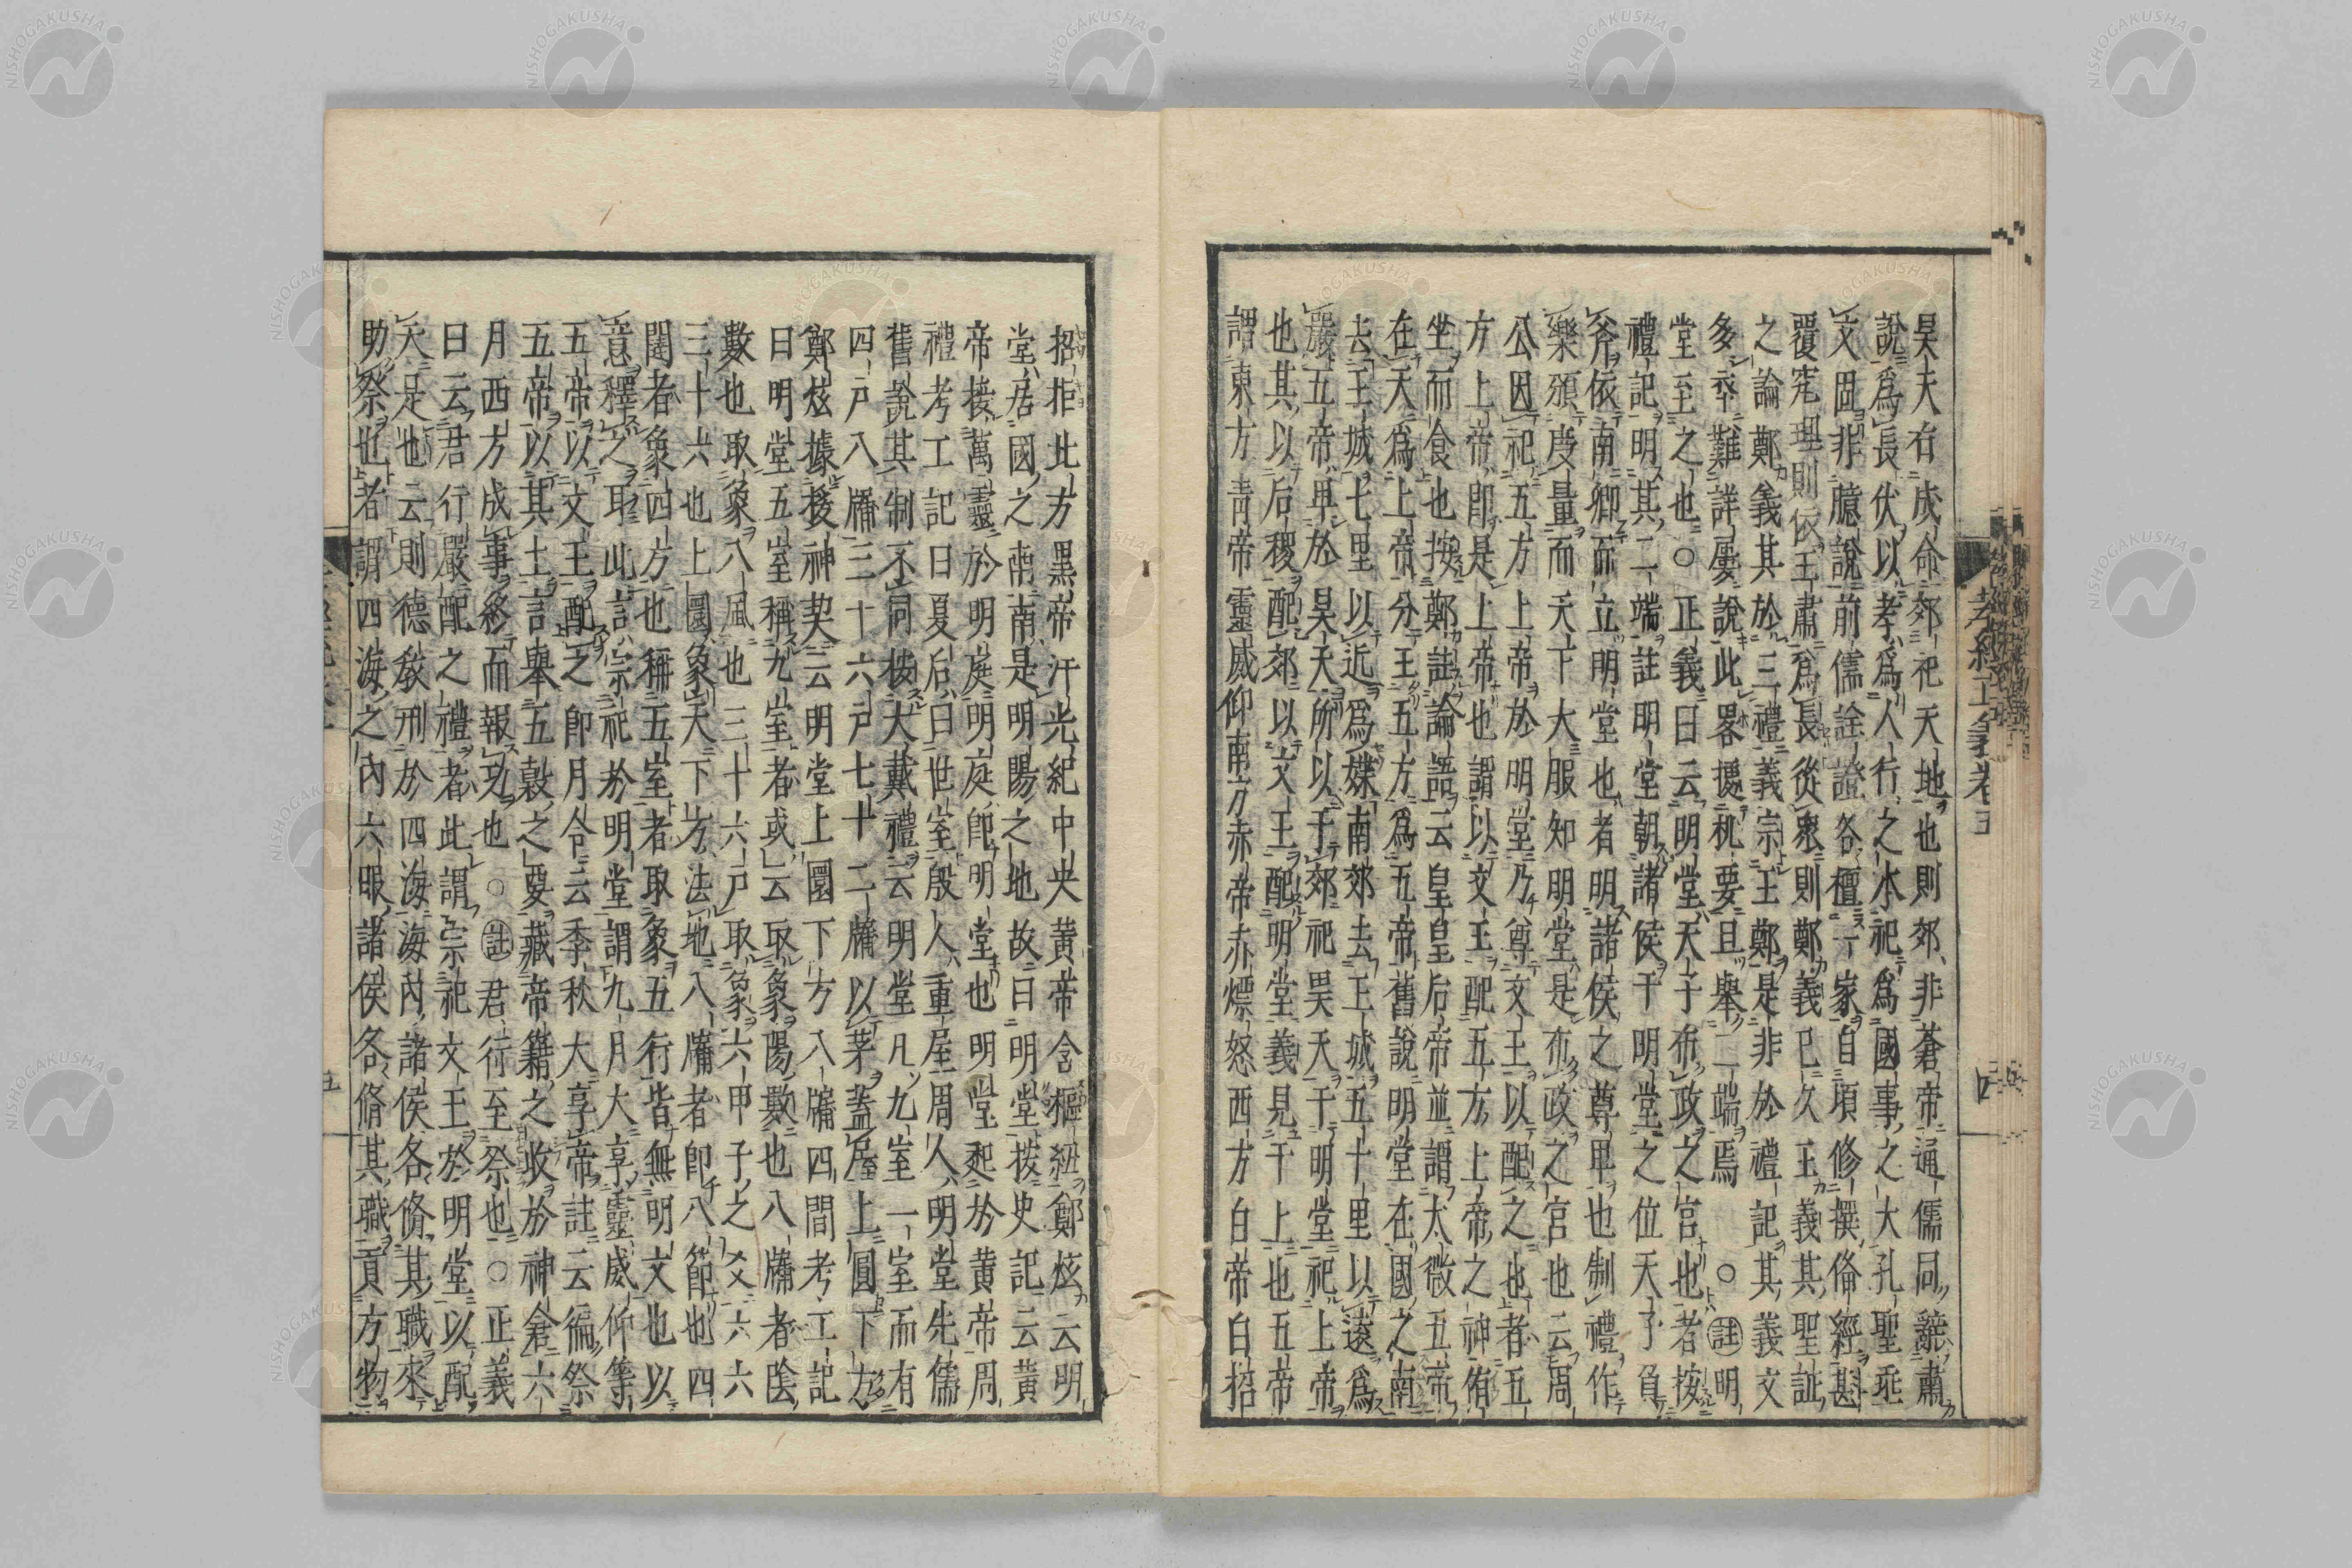 孝經正義卷五
四
昊天有成命郊祀天地也則郊非蒼帝通儒同辭肅
說爲長伏以孝爲人行之本祀爲國事之大孔聖垂
文固非臆說前儒詮證各擅一家自頃修撰俻經斟
覆究理則依王肅爲長從衆則鄭義已久王義其聖証
之論鄭義其於三禮義宗王鄭是非於禮記其義文
多卒難詳屢說此畧據机要且舉二端焉○註明
堂至之也○正義曰云明堂天子布政之宮也者按
禮記明其二端註明堂朝諸侯于明堂之位天子負
斧依南鄉而立明堂也者明諸侯之尊卑也制禮作
樂頒度量而天下大服知明堂是布政之宮也云周
公因祀五方上帝於明堂乃尊文王以配之也者五
方上帝即是上帝也謂以文王配五方上帝之神侑
坐而食也按鄭註論語云皇皇后帝並謂太微五帝
在天爲上帝分王五方爲五帝舊說明堂在國之南
去王城七里以近爲媟南郊去王城五十里以遠爲
嚴五帝卑於昊天所以于郊祀昊天于明堂祀上帝
也其以后稷配郊以文王配明堂義見于上也五帝
謂東方青帝靈威仰南方赤帝赤熛怒西方白帝白招
招拒北方黑帝汁光紀中央黃帝含樞紐鄭炫云明
堂居國之南南是明陽之地故曰明堂按史記云黃
帝接萬靈於明庭明庭即明堂也明堂起於黃帝周
禮考工記曰夏后曰世室殷人重屋周人明堂先儒
舊說其制不同按大戴禮云明堂凡九室一室而有
四戶八牖三十六戶七十二牖以茅蓋屋上圓下方
鄭炫據援神契云明堂上圜下方八牖四闥考工記
曰明堂五室稱九室者或云取象陽數也八牖者陰
數也取象八風也三十六戶取象六甲子之爻六六
三十六也上圜象天下方法地八牖者即八節也四
闥者象四方也稱五室者取象五行皆無明文也以
意釋之耳此言宗祀於明堂謂九月大享靈威仰等
五帝以文王配之即月令云季秋大享帝註云徧祭
五帝以其上言舉五穀之要藏帝籍之收於神倉六
月西方成事終而報功也○註君行至祭也○正義
曰云君行嚴配之禮者此謂宗祀文王於明堂以配
天是也云則德敎刑於四海海內諸侯各脩其職來
助祭也者謂四海之內六服諸侯各脩其職貢方物